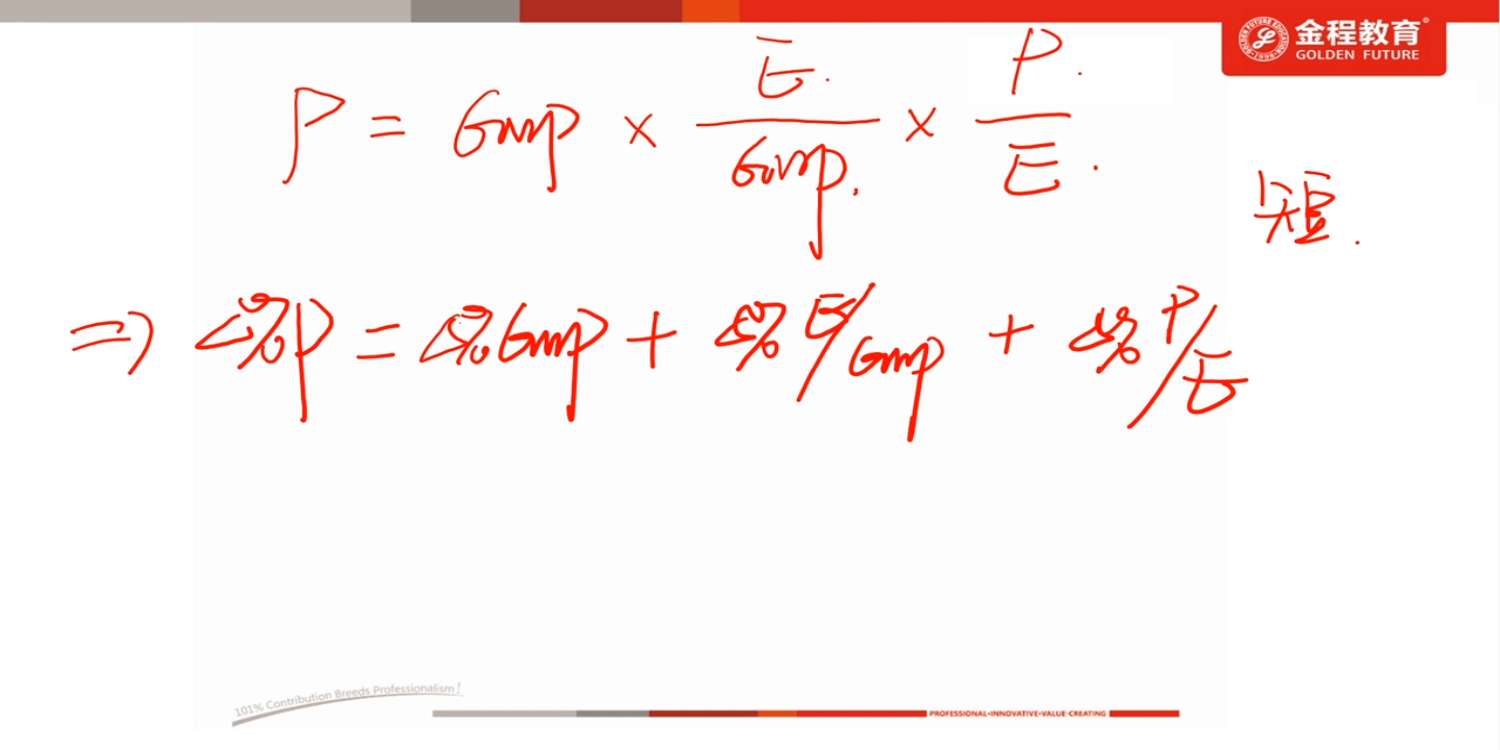 金程教育®
GOLDEN FUTURE
P = Gmp × E. / Gmp. × P. / E.
短.
⇒ Δ%P = Δ%Gmp + Δ% E/Gmp + Δ% P/E
101% Contribution Breeds Professionalism!
PROFESSIONAL•INNOVATIVE•VALUE-CREATING